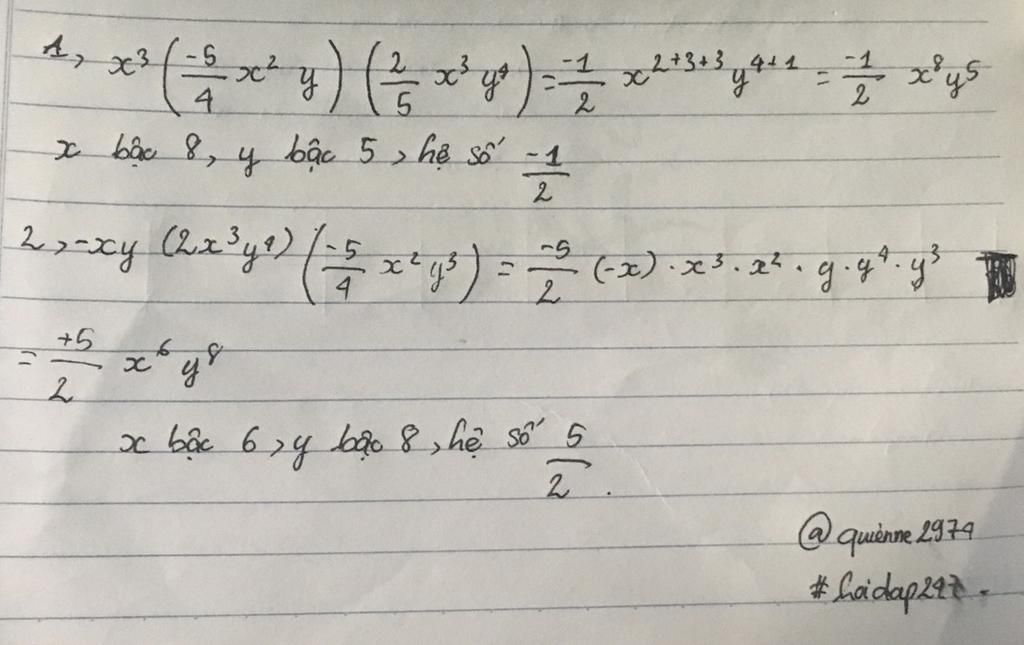 1, x³ (-5/4 x² y) (2/5 x³ y⁴) = -1/2 x²⁺³⁺³ y⁴⁺¹ = -1/2 x⁸y⁵
x bậc 8, y bậc 5, hệ số -1/2
2, -xy (2x³y⁴) (-5/4 x² y³) = -5/2 (-x) · x³ · x² · y · y⁴ · y³
= +5/2 x⁶ y⁸
x bậc 6, y bậc 8, hệ số 5/2.
@quiènne2974
#hoidap247.